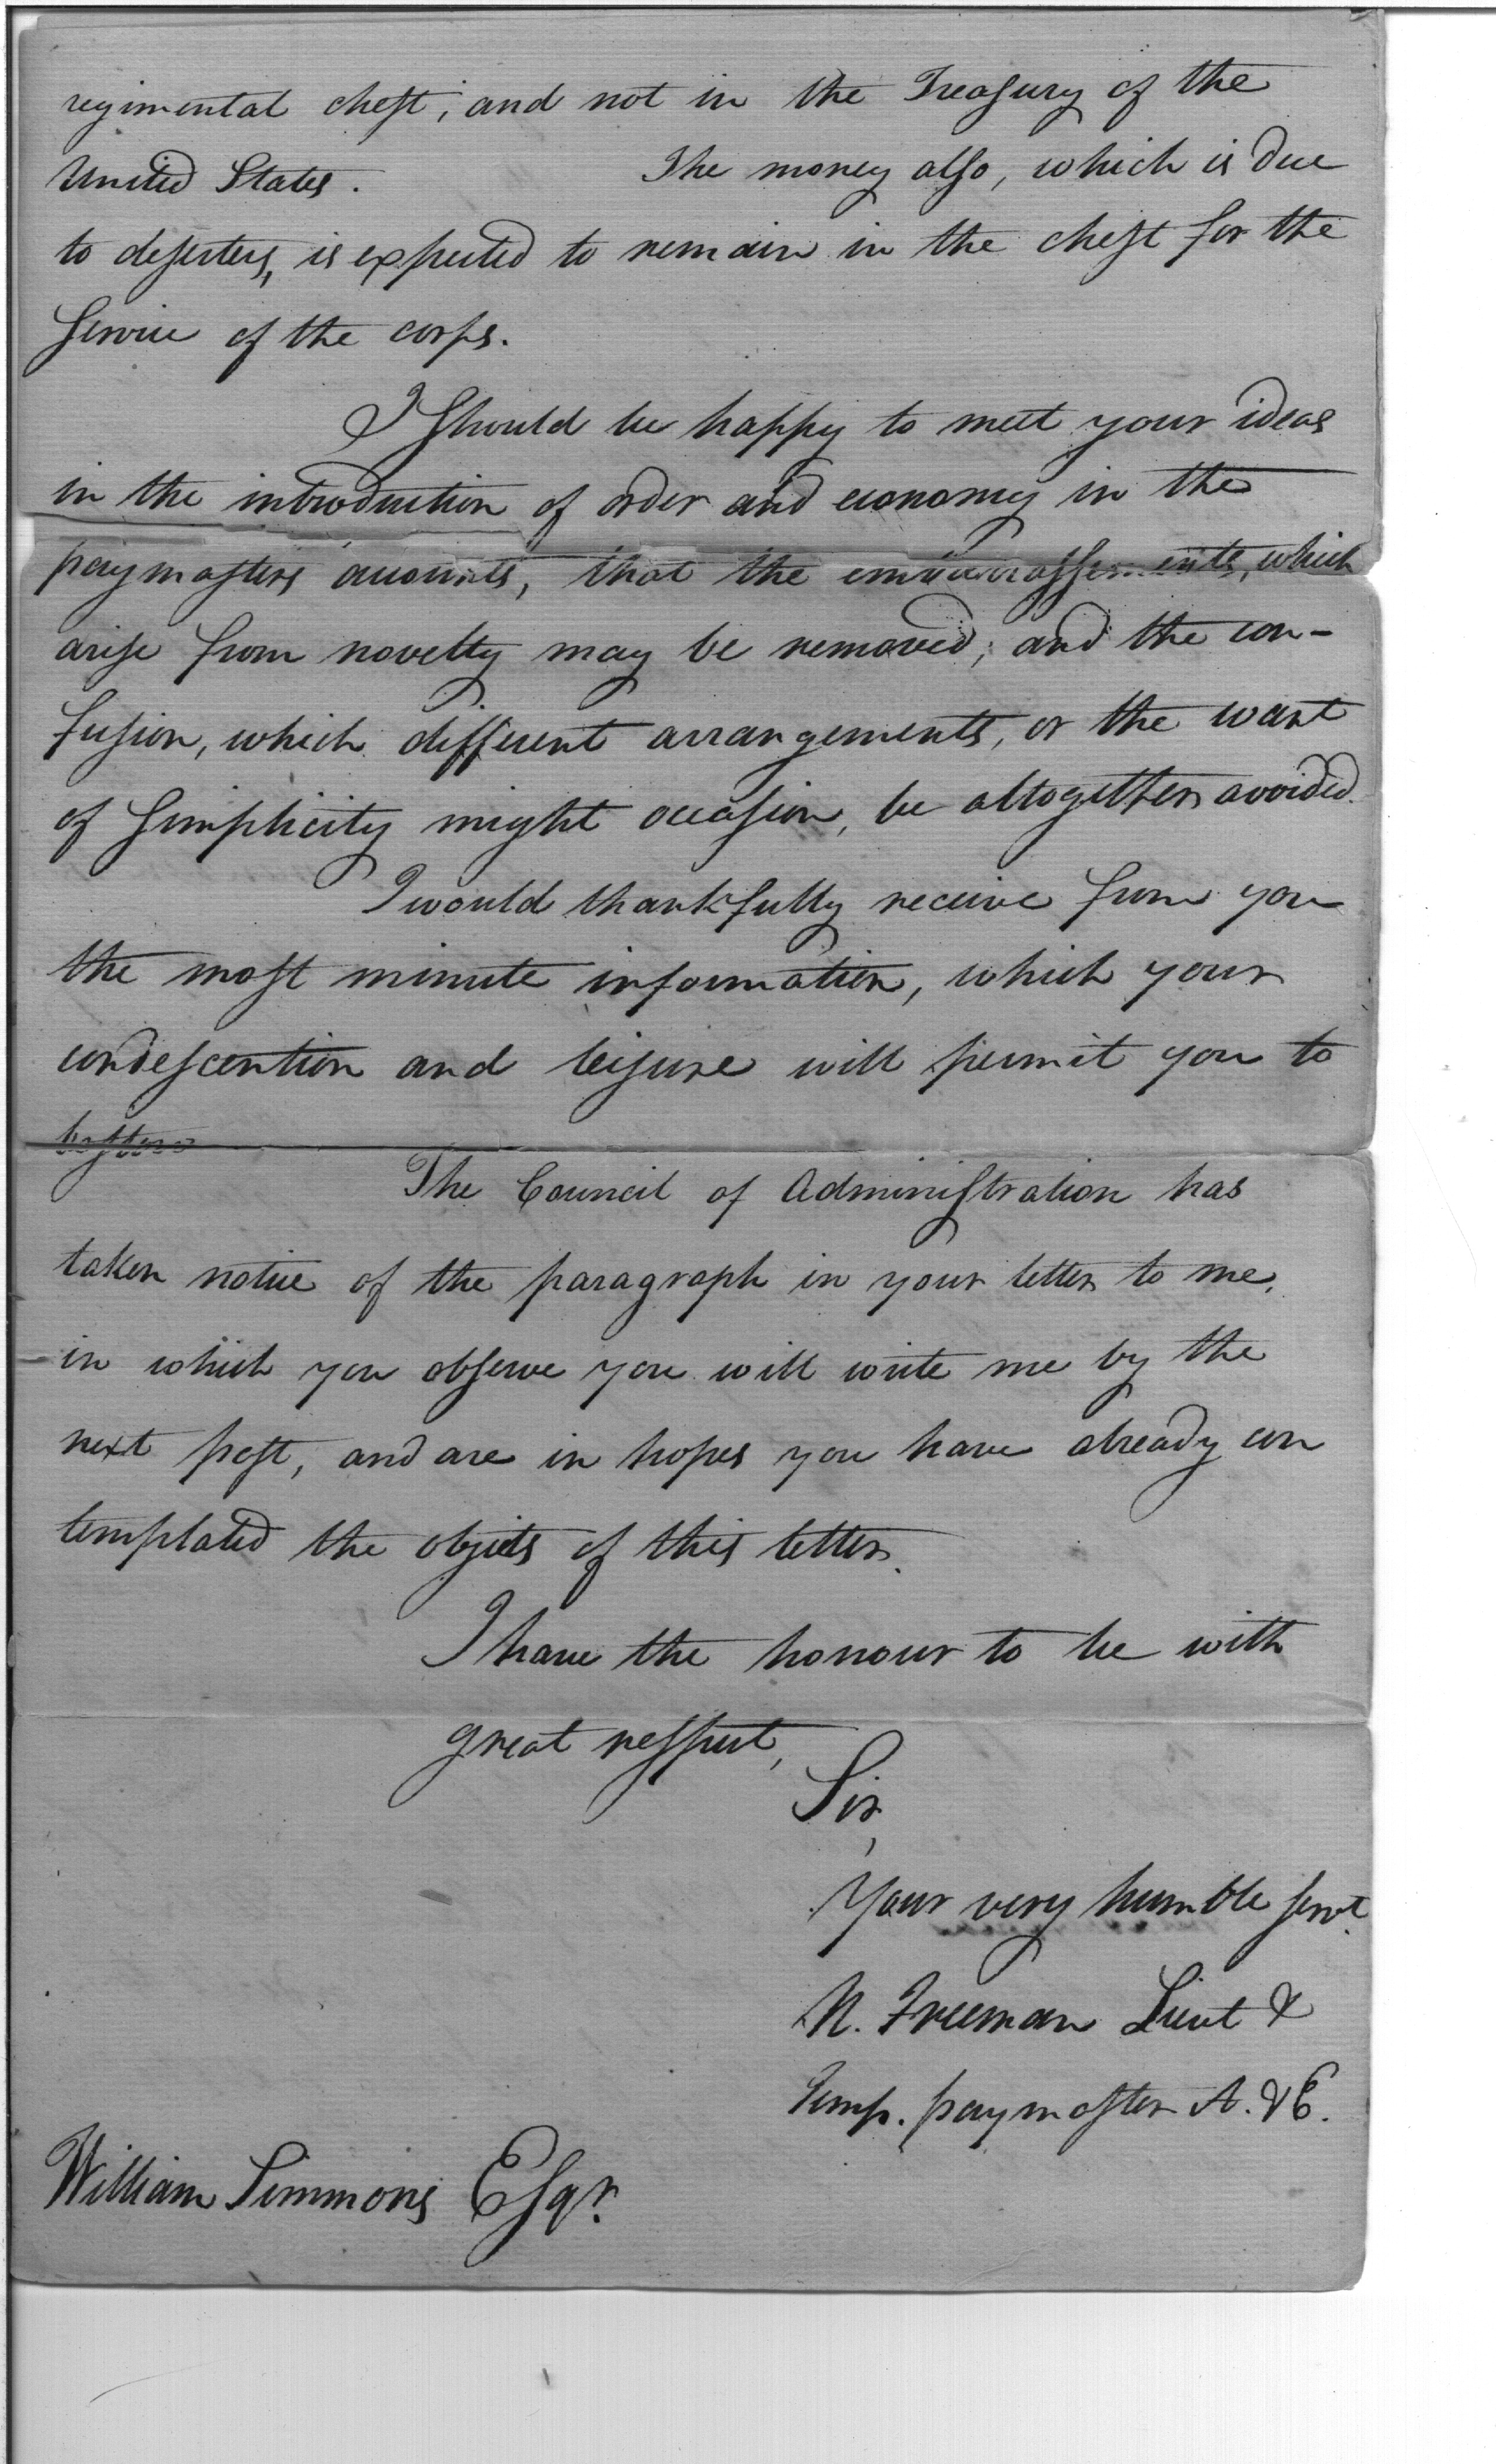 regimental chest, and not in the Treasury of the
United States. The money also, which is due
to deserters, is expected to remain in the chest for the
service of the corps.
I should be happy to meet your ideas
in the introduction of order and economy in the
paymasters accounts, that the embarrassements, which
arise from novelty may be removed; and the con-
fusion, which different arrangements, or the want
of simplicity might occasion, be altogether avoided.
I would thankfully receive from you
the most minute information, which your
condescention and leisure will permit you to
bestow
The Council of Administration has
taken notice of the paragraph in your letter to me,
in which you observe you will write me by the
next post, and are in hopes you have already con
templated the objects of this letter.
I have the honour to be with
great respect,
Sir,
Your very humble servt.
N. Freeman Lieut &
Temp. paymaster A. & E.
William Simmons Esqr.